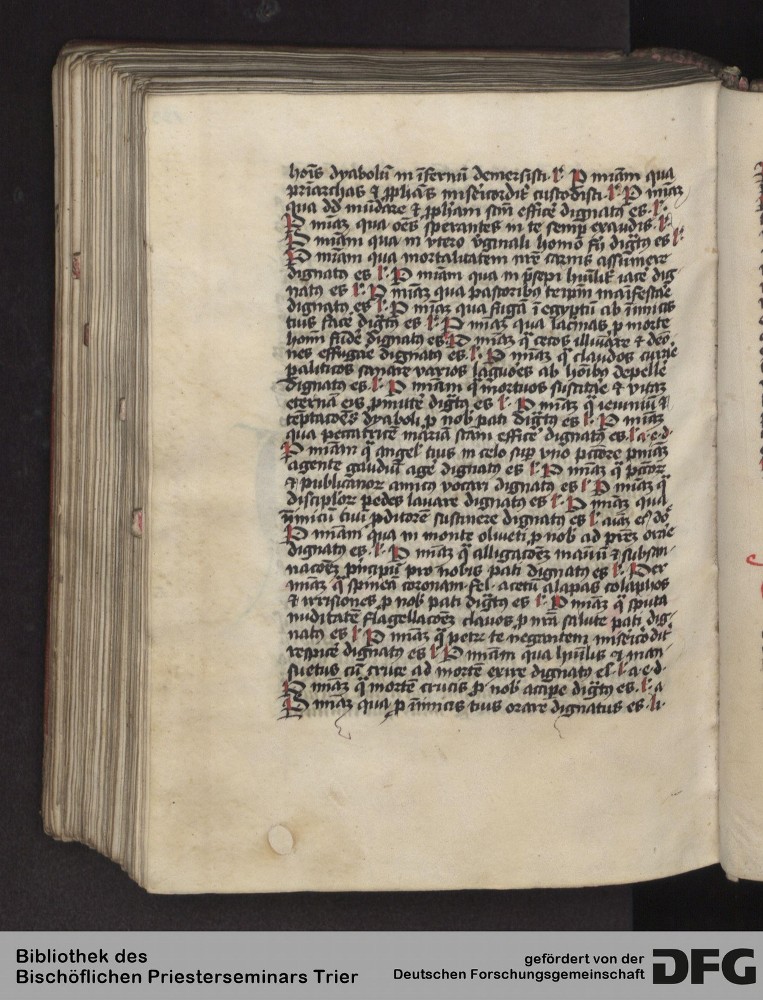 hoīs dyabolū in īfernū demersisti · l' · P miam̄ qua
pr̄iarchas & ꝓphās misericordit' custodisti · l' · P miaꝫ
qua dd mūdare & ꝓph̄am sc̄m efficē dignatꝰ es · l' ·
P miaꝫ qua oēs sperantes in te semꝑ exaudis · l' ·
P miam̄ qua in vtero v'ginali homō fīi diḡtꝰ es l' ·
P miam̄ qua mortalitatem nr̄e carnis assūmere
dignatꝰ es l' · P miam̄ qua in p̄sepi hūilit' iacē dig
natꝰ es l' · P miaꝫ qua pastoribꝰ teip̄m māifestaē
dignatꝰ es · l' · P miaꝫ qua fugā ī egyptū ab īimicis
tuis facē diḡtꝰ es l' · P miaꝫ qua lac̄mas ꝓ morte
hoīm fūdē dignatꝰ es P miaꝫ q̄ cecos illūiare & deō
nes effugare dignatꝰ es · l' · P miaꝫ q̄ claudos curaē
paliticos sanare varios lāguōes ab hoībꝰ depellē
dignatꝰ es · l' · P miam̄ q̄ mortuos suscitaē & vitaꝫ
eternā eis ꝓmittē diḡtꝰ es l' · P miaꝫ q̄ ieiuniū &
tēptacōēs dyaboli ꝓ nob̄ pati diḡtꝰ es l' · P miaꝫ
qua peccatricē mariā sc̄am efficē dignatꝰ es · l' · a · e · d ·
P miam̄ q̄ angel' tuis in celo suꝑ vno pctōre pniaꝫ
agente gaudiū agē dignatꝰ es l' · P miaꝫ q̄ pctōꝝ
& publicanoꝝ amicꝰ vocari dignatꝰ es l' · P miaꝫ q̄
disciploꝝ pedes lauare dignatꝰ es l' · P miaꝫ qua
īimicū tuū ꝓditorē sustinere dignatꝰ es l'
P miam̄ qua in monte oliueti ꝓ nob̄ ad pr̄eꝫ oraē
dignatꝰ es · l' · P miaꝫ q̄ alligacōēꝫ manuū &
pro nobis pati dignatꝰ es l' · Per
miaꝫ q̄ spineā coronam · fel · acetū alapas colaphos
& irrisiones ꝓ nob̄ pati diḡtꝰ es l' · P miaꝫ q̄ sputa
nuditatē flagellacōeꝫ clauos ꝓ nr̄a salute pati dig ·
natꝰ es l' P miaꝫ q̄ petrꝰ te negantem misericordit'
respicē dignatꝰ es l' P miam̄ qua hūilis & man ·
suetus cū cruce ad mortē exire dignatꝰ es · l' · a · e · d ·
P miaꝫ q̄ mortē crucis ꝓ nob̄ accipē diḡtꝰ es · l' · a
P miaꝫ qua ꝓ īimicis tuis orare dignatus es · li ·
Bibliothek des
Bischöflichen Priesterseminars Trier
gefördert von der
Deutschen Forschungsgemeinschaft
DFG